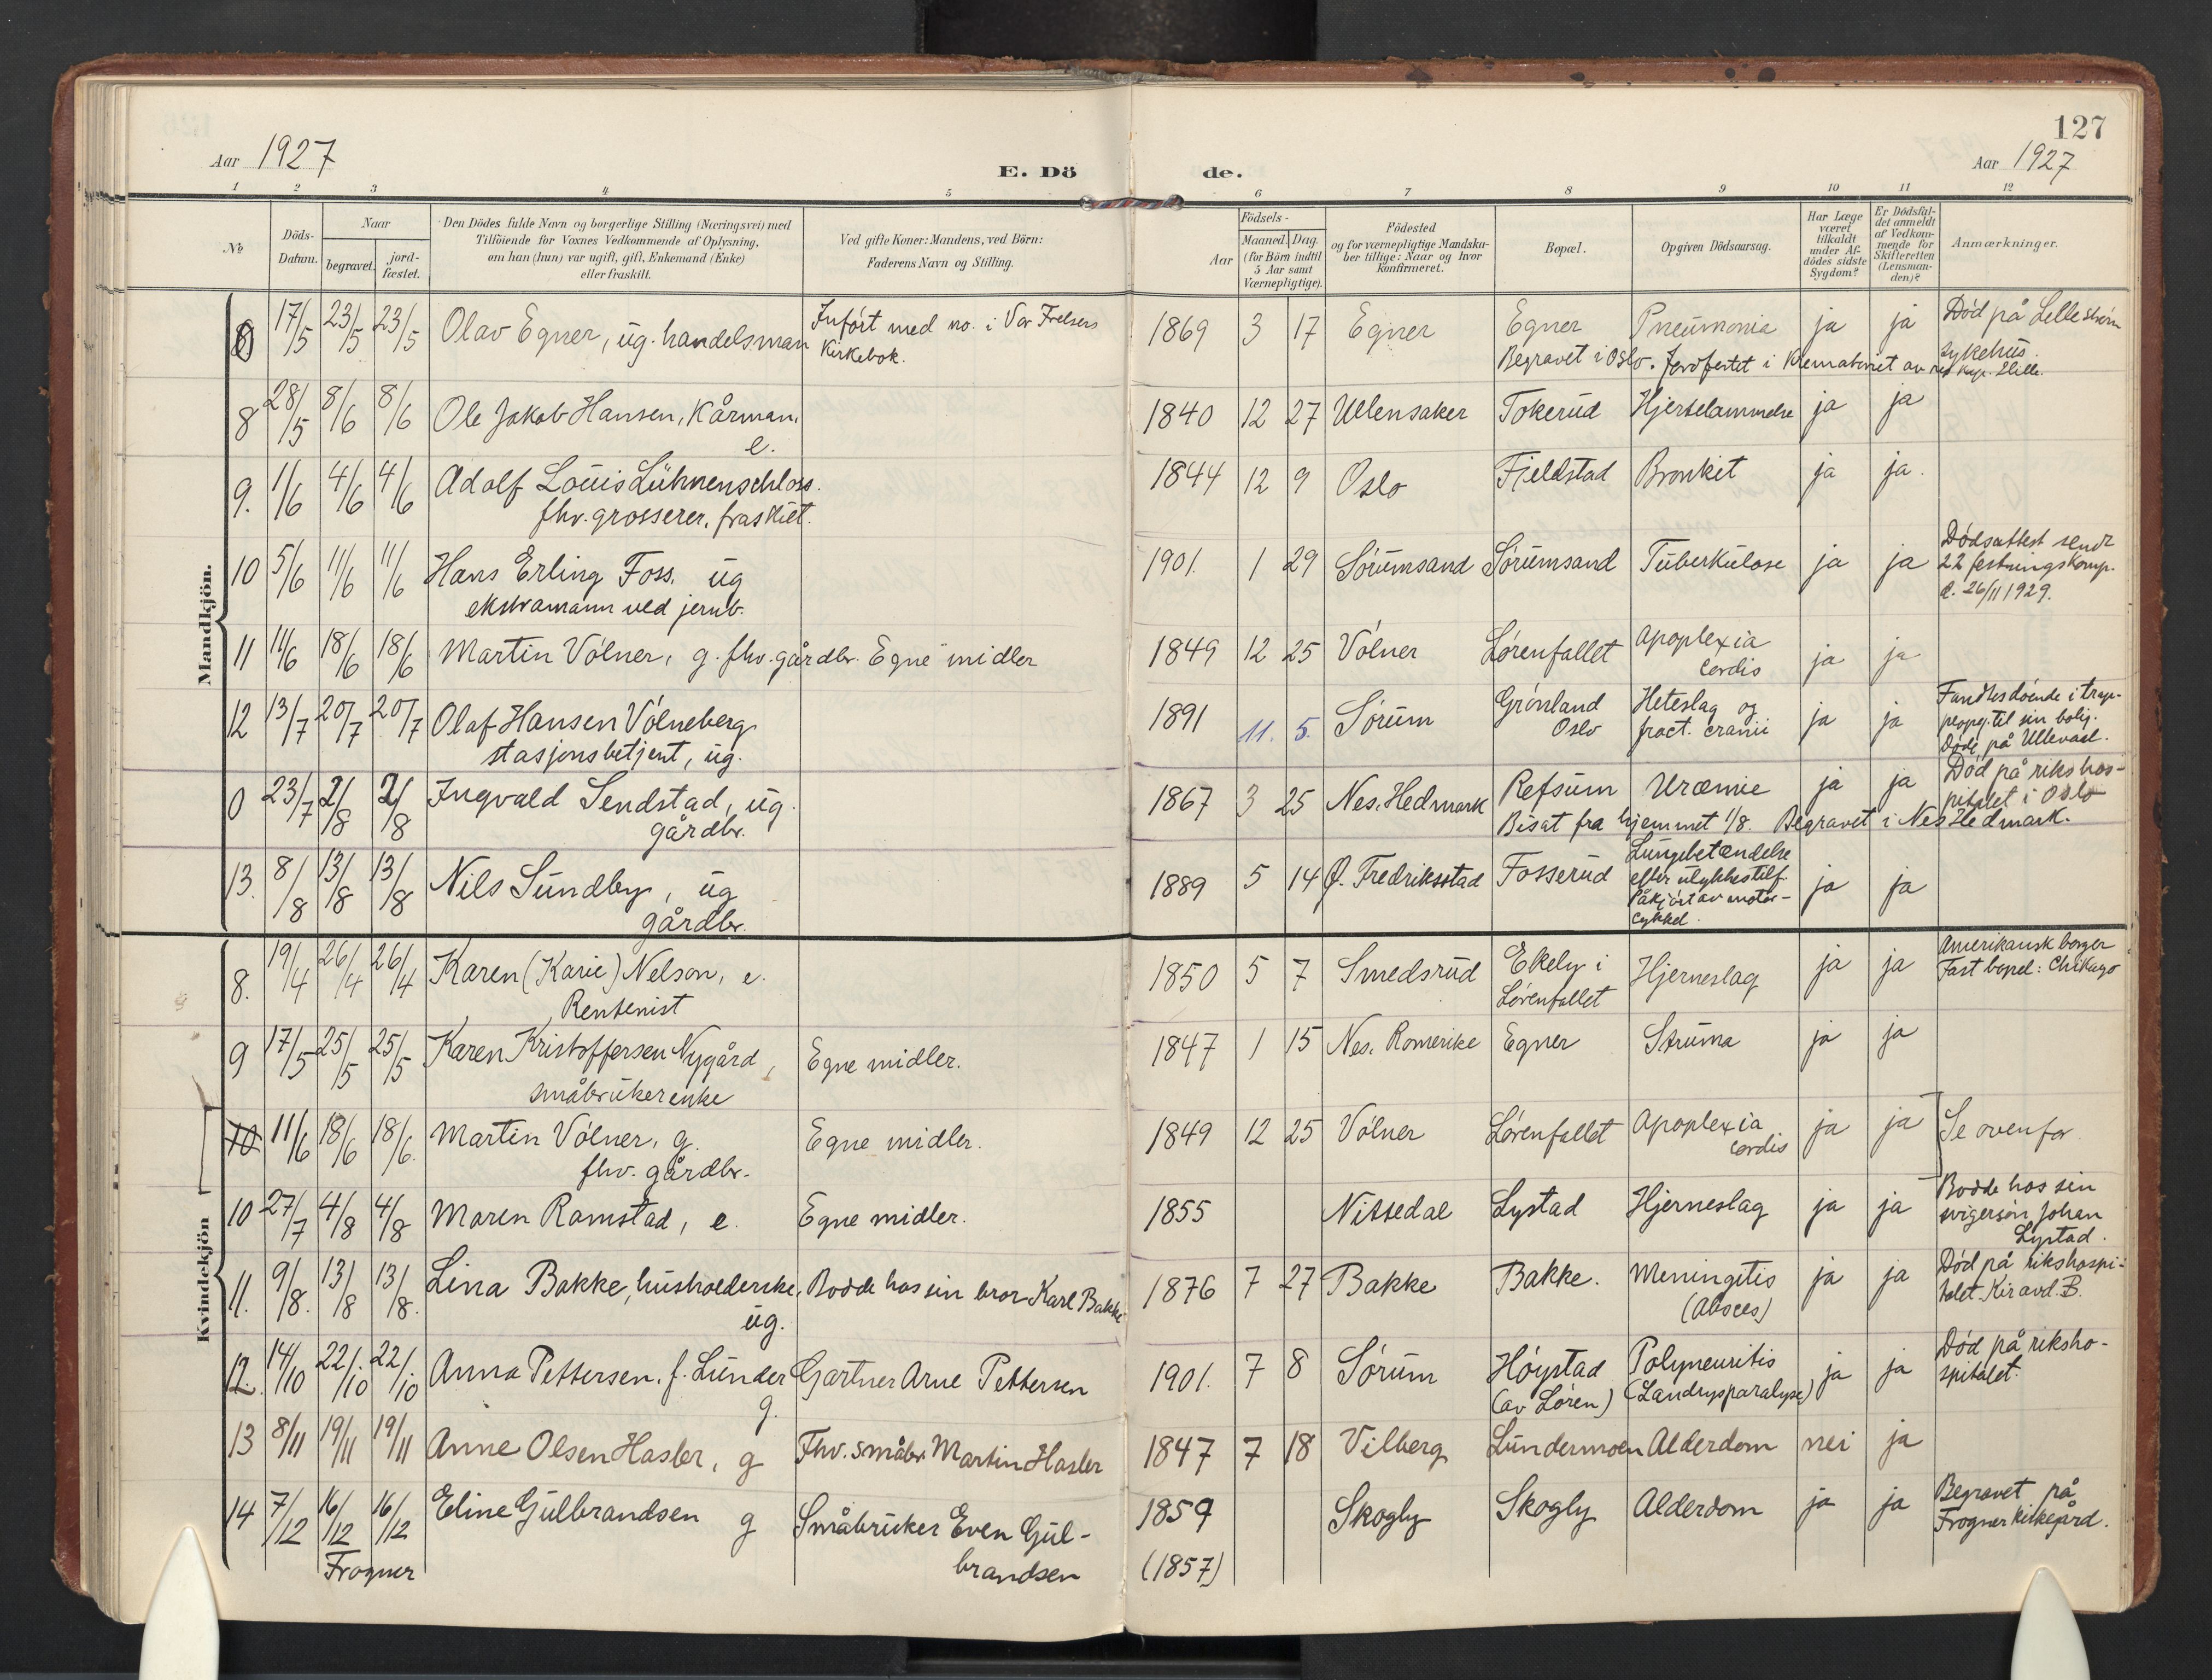 127
Aar 1927
E. Dö de.
Aar 1927
1 2 3 4 5 6 7 8 9 10 11 12
No
Döds-
Datum.
Naar
begravet.
jord-
fæstet.
Den Dödes fulde Navn og borgerlige Stilling (Næringsvei) med
Tilföiende for Voxnes Vedkommende af Oplysning,
om han (hun) var ugift, gift, Enkemand (Enke)
eller fraskilt.
Ved gifte Koner: Mandens, ved Börn:
Faderens Navn og Stilling.
Födsels-
Aar
Maaned. Dag.
(for Börn indtil
5 Aar samt
Værnepligtige).
Födested
og for værnepligtige Mandska-
ber tillige: Naar og hvor
Konfirmeret.
Bopæl.
Opgiven Dödsaarsag.
Har Læge
været
tilkaldt
under Af-
dödes sidste
Sygdom?
Er Dödsfal-
det anmeldt
af Vedkom-
mende for
Skifteretten
(Lensman-
den)?
Anmærkninger.
Mandkjön.
17/5 23/5 23/5 Olav Egner, ug. handelsman Infört med no. i Vor Frelsers
Kirkebok.
1869 3 17 Egner Egner Pneumonia ja ja Död på Lillestrøm
sykehus.
Begravet i Oslo. Jordfestet i Krematoriet av
8 28/5 8/6 8/6 Ole Jakob Hansen, Kårman,
e.
1840 12 27 Ullensaker Tokerud Hjertelammelse ja ja
9. 1/6 4/6 4/6 Adolf Louis Lühnenschloss.
fhv. grosserer, fraskilt.
1844 12 9 Oslo Fjeldstad Bronkit ja ja.
10 5/6 11/6 11/6 Hans Erling Foss, ug
ekstramann ved jernb.
1901. 1 29 Sörumsand Sörumsand Tuberkulose ja ja Dödsattest sendt
22 festningskomp.
d. 26/11 1929.
11 11/6 18/6 18/6 Martin Völner, g. fhv. gårdbr. Egne midler
1849 12 25 Völner Lörenfallet Apoplexia
Cordis ja ja
12 13/7 20/7 20/7 Olaf Hansen Völneberg
stasjonsbetjent, ug.
1891 11. 5. Sörum Grönland
Oslo Heteslag og
fract. cranii ja ja Fandtes döende i trap-
peopg. til sin bolig.
Döde på Ullevaal.
0 23/7 2/8 2/8 Ingvald Sendstad, ug.
gårdbr.
1867 3 25 Nes. Hedmark Refsum Uræmie ja ja Död på rikshos-
pitalet i Oslo
Bisat fra hjemmet 1/8. Begravet i Nes Hedmark.
13. 8/8 13/8 13/8 Nils Sundby, ug
gårdbr.
1889 5 14 Ø. Fredriksstad Fosserud Lungebetændelse
efter ulykkestilf.
Påkjört av motor-
cykkel. ja ja
Kvindekjön
8. 19/4 26/4 26/4 Karen (Karie) Nelson, e.
Rentenist
1850 5 7 Smedsrud Ekely i
Lörenfallet Hjerneslag ja ja Amerikansk borger
Fast bopel: Chikago
9 17/5 25/5 25/5 Karen Kristoffersen Nygård,
småbrukerenke Egne midler.
1847 1 15 Nes. Romerike Egner Struma ja ja
10 11/6 18/6 18/6 Martin Völner, g.
fhv. gårdbr. Egne midler.
1849 12 25 Völner Lörenfallet Apoplexia
Cordis ja ja Se ovenfor
10 27/7 4/8 4/8 Maren Ramstad, e. Egne midler.
1855 Nittedal Lystad Hjerneslag ja ja Bodde hos sin
svigersön Johan
Lystad.
11. 9/8. 13/8 13/8. Lina Bakke, husholderske, Bodde hos sin bror Karl Bakke
ug.
1876 7 27 Bakke Bakke. Meningitis
(Absces) ja ja Död på rikshospi-
talet. Kir avd. B.
12. 14/10 22/10 22/10 Anna Pettersen, f. Lunder Gartner Arne Pettersen
g.
1901. 7 8 Sörum Höystad
(av Lören) Polyneuritis
(Landrysparalyse) ja ja Död på riksho-
spitalet.
13 8/11 19/11 19/11 Anne Olsen Hasler, g Fhv. småbr. Martin Hasler
1847 7 18 Vilberg Lundermoen Alderdom nei ja
14 7/12 16/12 16/12 Eline Gulbrandsen g Småbruker Even Gul-
brandsen
Frogner
1859
(1857)
Skogly Skogly Alderdom ja ja Begravet på
Frogner kirkegård.